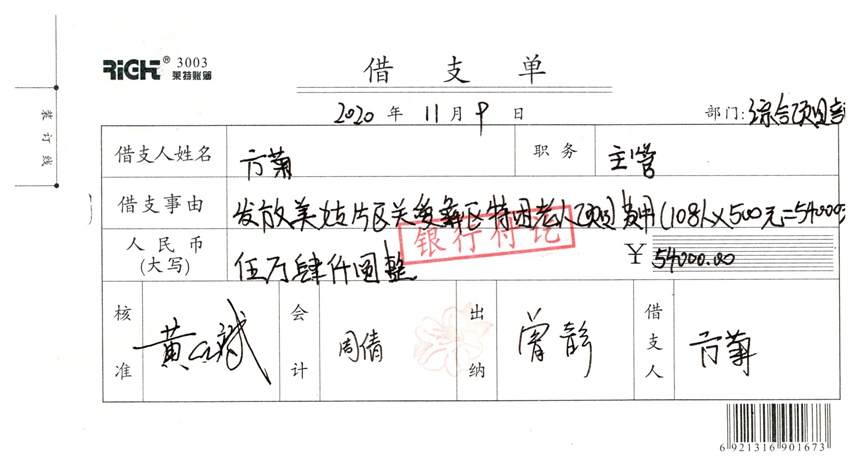 RiCHT® 3003
莱特账簿
借支单
2020 年 11 月 9 日 部门:综合项目部
装订线
借支人姓名 方菊 职务 主管
借支事由 发放美姑片区关爱彝区特困老人项目费用(108人×500元=54000元
银行付讫
人民币(大写) 伍万肆仟圆整 ¥ 54000.00
核准 黄 会计 周倩 出纳 曾彭 借支人 方菊
6 921316 901673